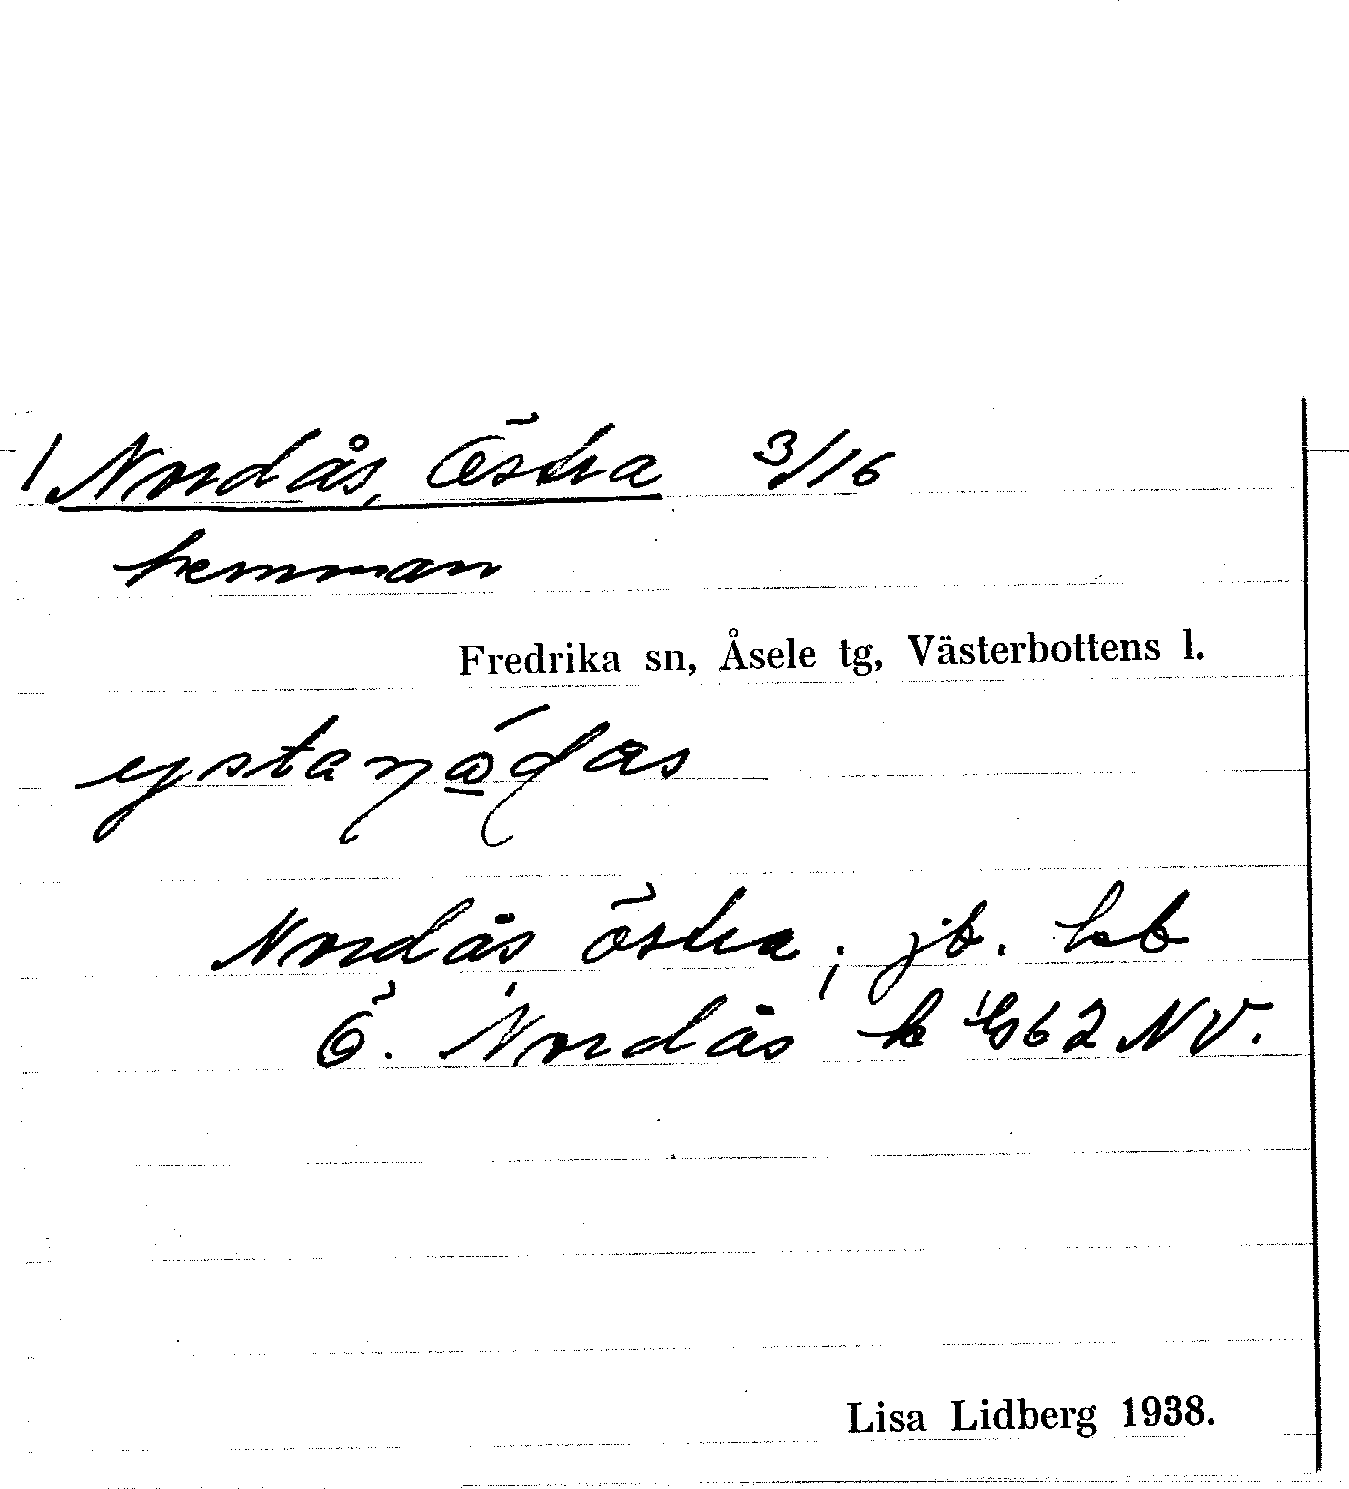 1 Nordås, Östra 3/16
hemman
Fredrika sn, Åsele tg, Västerbottens l.
Nordås östra; jb. hb
Ö. Nordås k 62 NV.
Lisa Lidberg 1938.